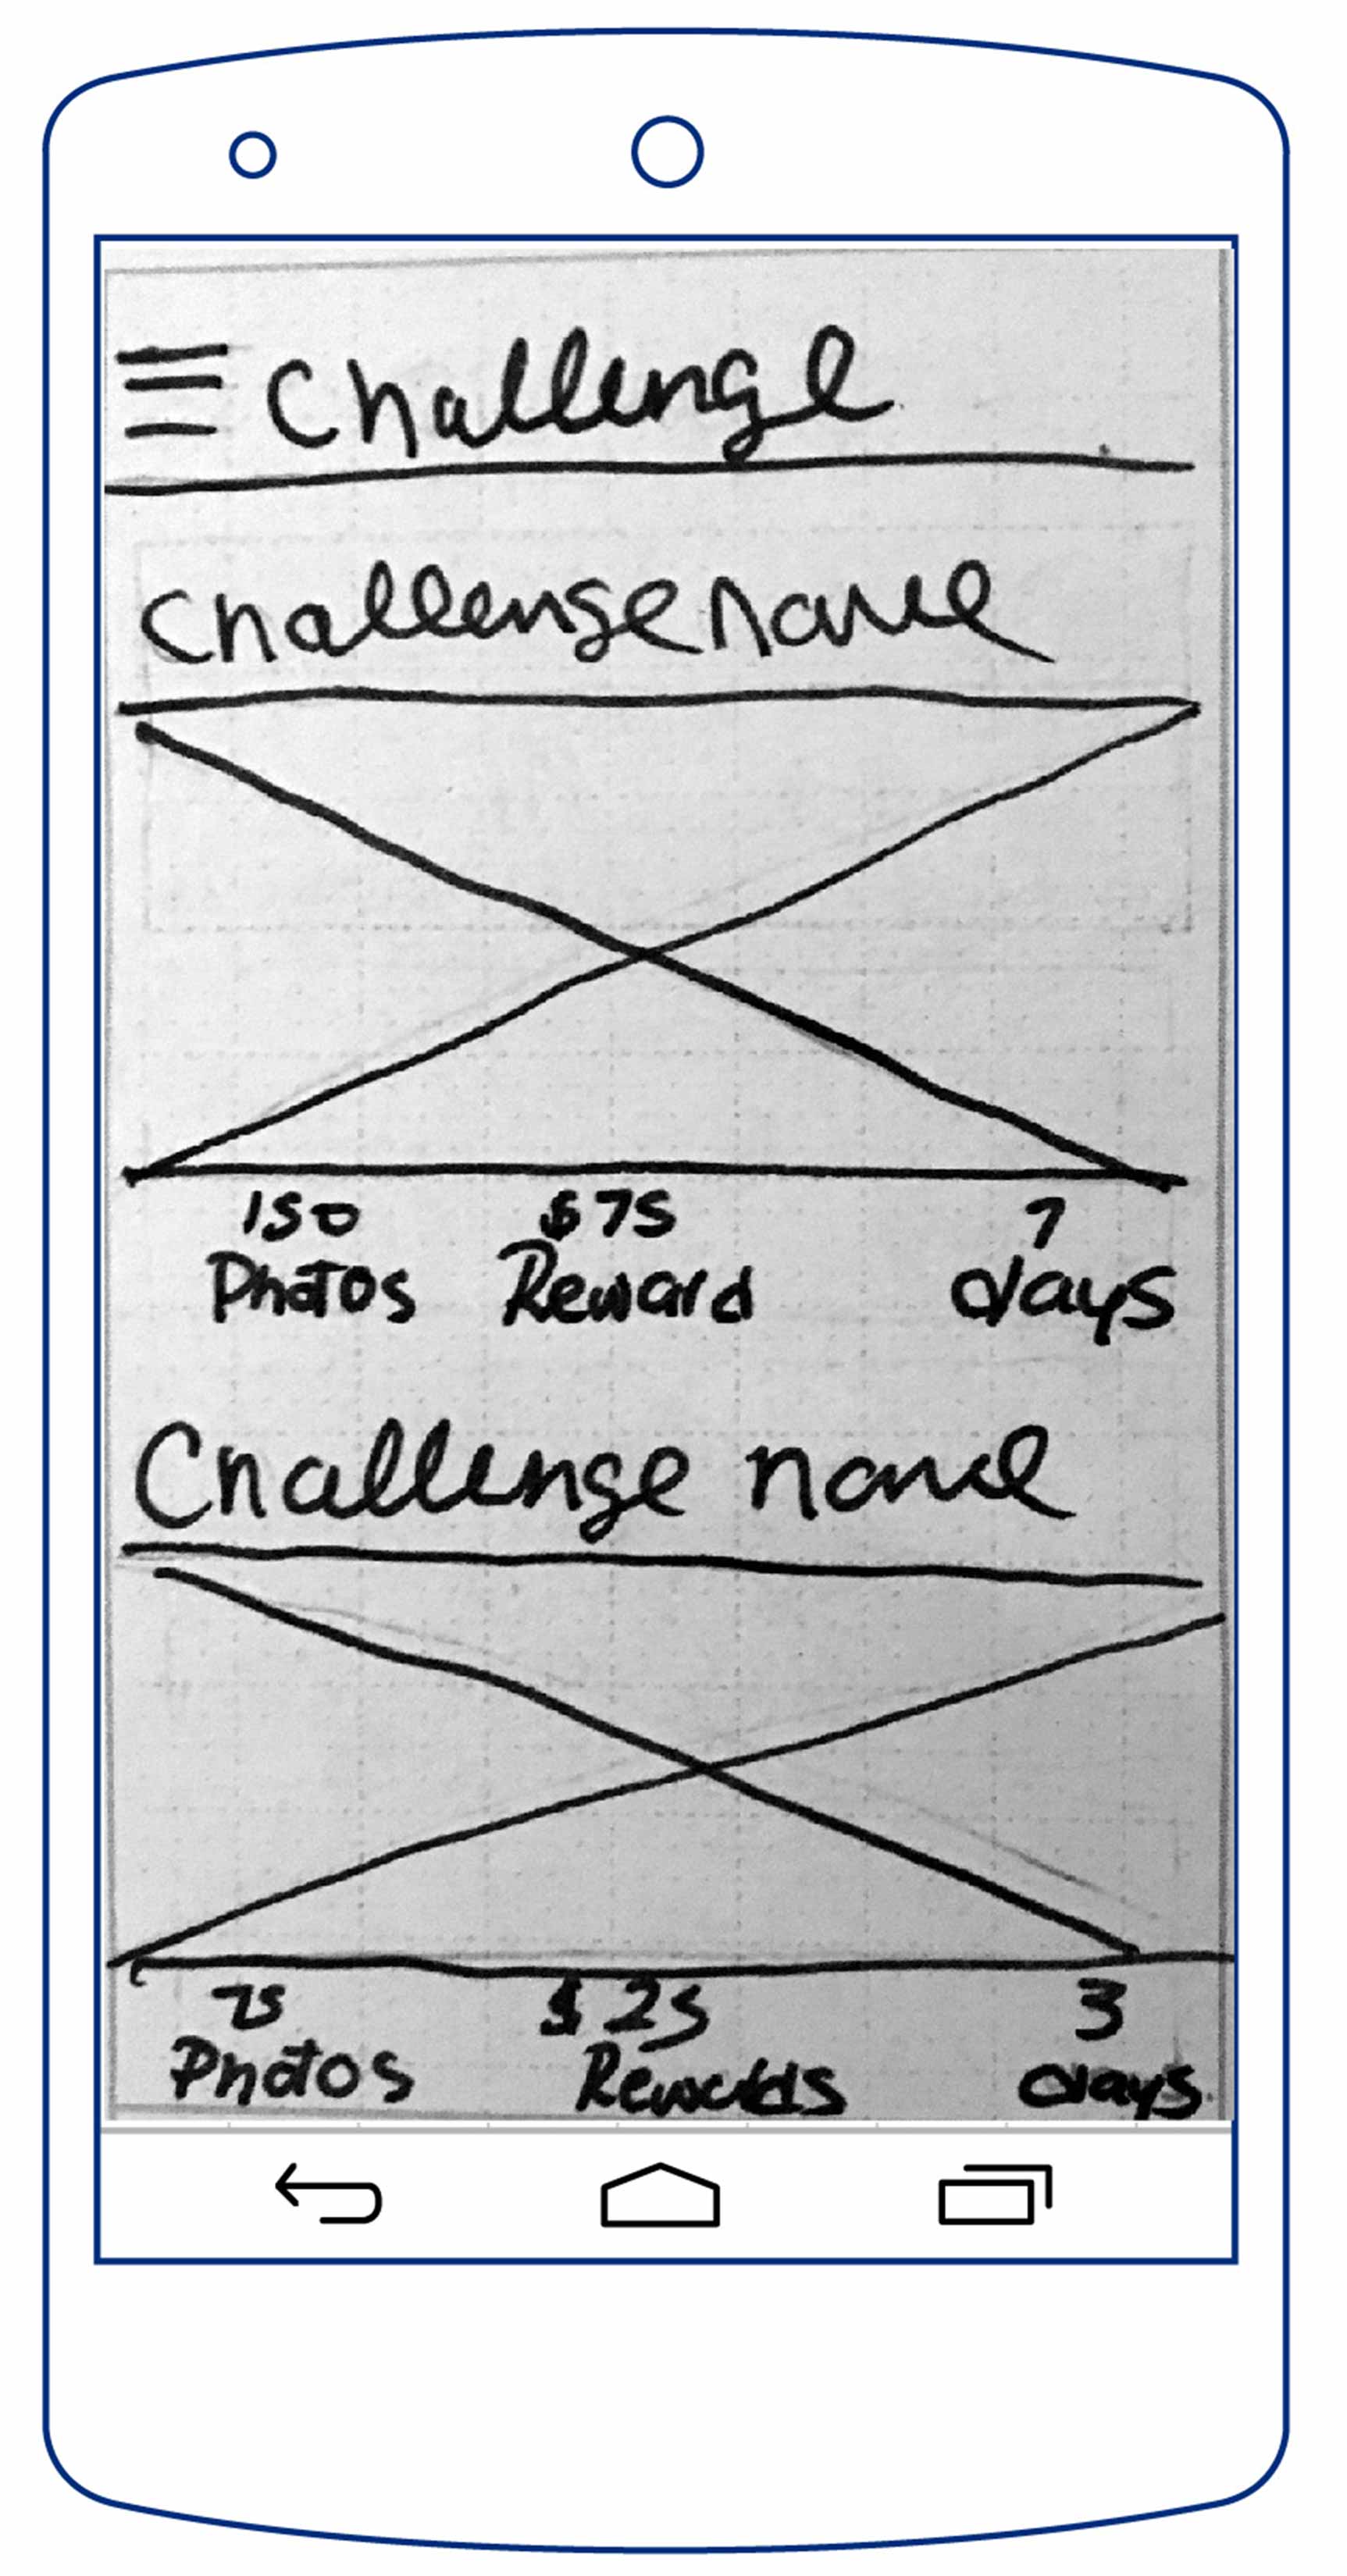 Challenge
Challenge name
150 $75 7
Photos Reward days
Challenge name
75 $25 3
Photos Rewards days